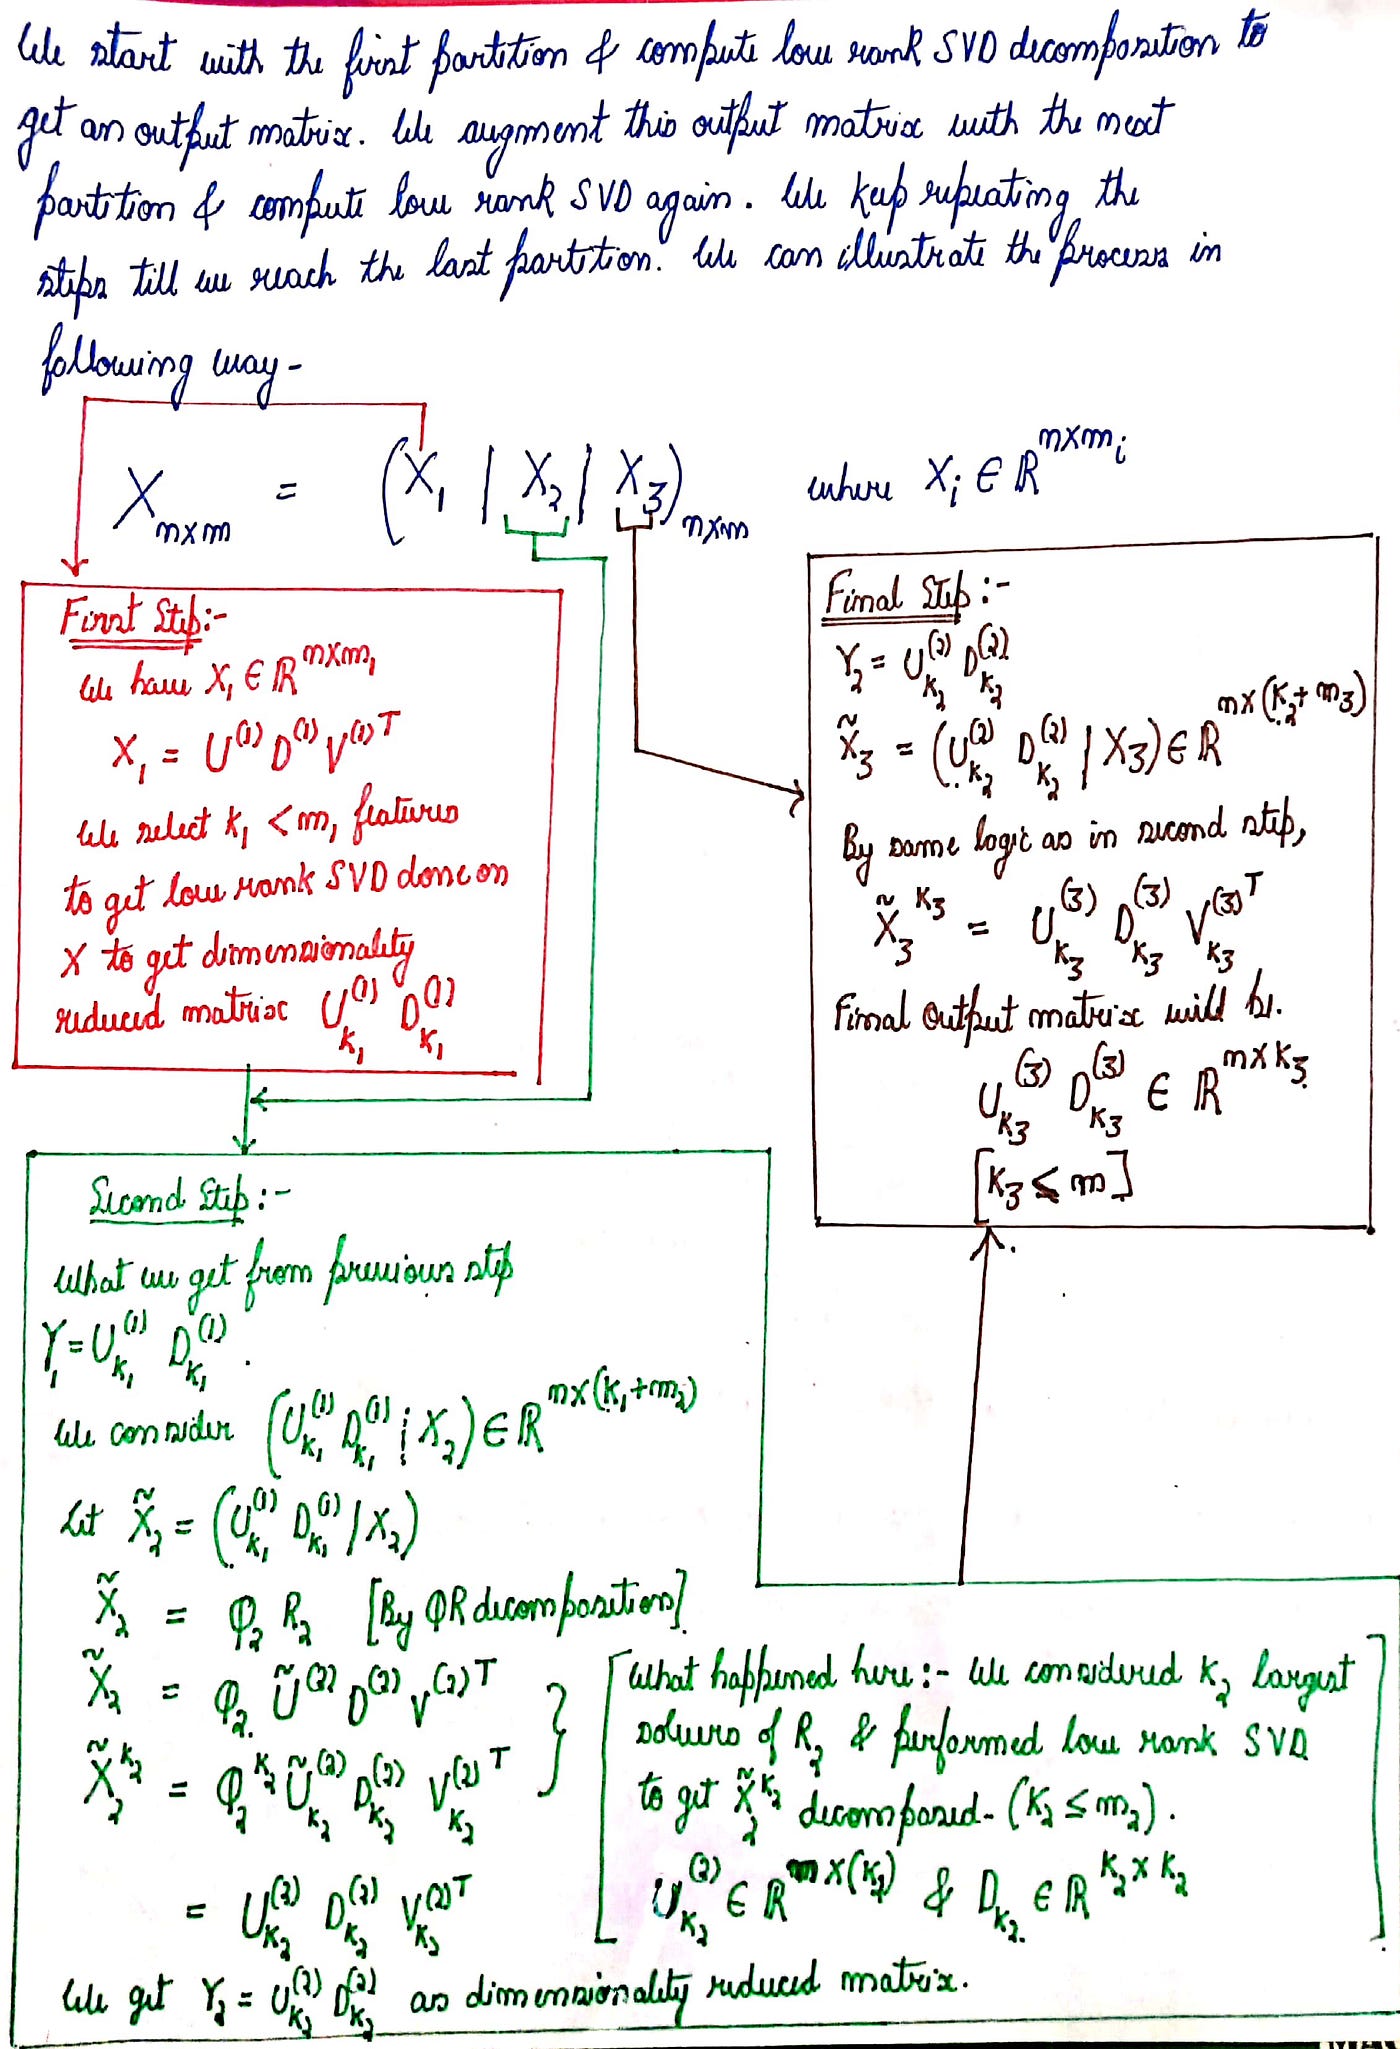 We start with the first partition & compute low rank SVD decomposition to
get an output matrix. We augment this output matrix with the next
partition & compute low rank SVD again. We keep repeating the
steps till we reach the last partition. We can illustrate the process in
following way-
X_{n×m} = (X_1 | X_2 | X_3)_{n×m} where X_i ∈ ℝ^{n×m_i}
First Step:-
We have X_1 ∈ ℝ^{n×m_1}
X_1 = U^{(1)} D^{(1)} V^{(1)T}
We select k_1 < m_1 features
to get low rank SVD done on
X to get dimensionality
reduced matrix U_{k_1}^{(1)} D_{k_1}^{(1)}
Final Step:-
Y_2 = U_{k_2}^{(2)} D_{k_2}^{(2)}
X̃_3 = (U_{k_2}^{(2)} D_{k_2}^{(2)} | X_3) ∈ ℝ^{n×(k_2+m_3)}
By same logic as in second step,
X̃_3^{k_3} = U_{k_3}^{(3)} D_{k_3}^{(3)} V_{k_3}^{(3)T}
Final output matrix will be.
U_{k_3}^{(3)} D_{k_3}^{(3)} ∈ ℝ^{n×k_3}
[k_3 ≤ m]
Second Step:-
What we get from previous step
Y_1 = U_{k_1}^{(1)} D_{k_1}^{(1)}.
We consider (U_{k_1}^{(1)} D_{k_1}^{(1)} ¦ X_2) ∈ ℝ^{n×(k_1+m_2)}
Let X̃_2 = (U_{k_1}^{(1)} D_{k_1}^{(1)} | X_2)
X̃_2 = Q_2 R_2 [By QR decomposition]
X̃_2 = Q_2 Ũ^{(2)} D^{(2)} V^{(2)T}
X̃_2^{k_2} = Q_2^{k_2} Ũ_{k_2}^{(2)} D_{k_2}^{(2)} V_{k_2}^{(2)T}
= U_{k_2}^{(2)} D_{k_2}^{(2)} V_{k_2}^{(2)T}
What happened here:- We considered k_2 largest
of R_2 & performed low rank SVD
to get X̃_2^{k_2} decomposed- (k_2 ≤ m_2).
U_{k_2}^{(2)} ∈ ℝ^{n×(k_2)} & D_{k_2} ∈ ℝ^{k_2×k_2}
We get Y_2 = U_{k_2}^{(2)} D_{k_2}^{(2)} as dimensionality reduced matrix.